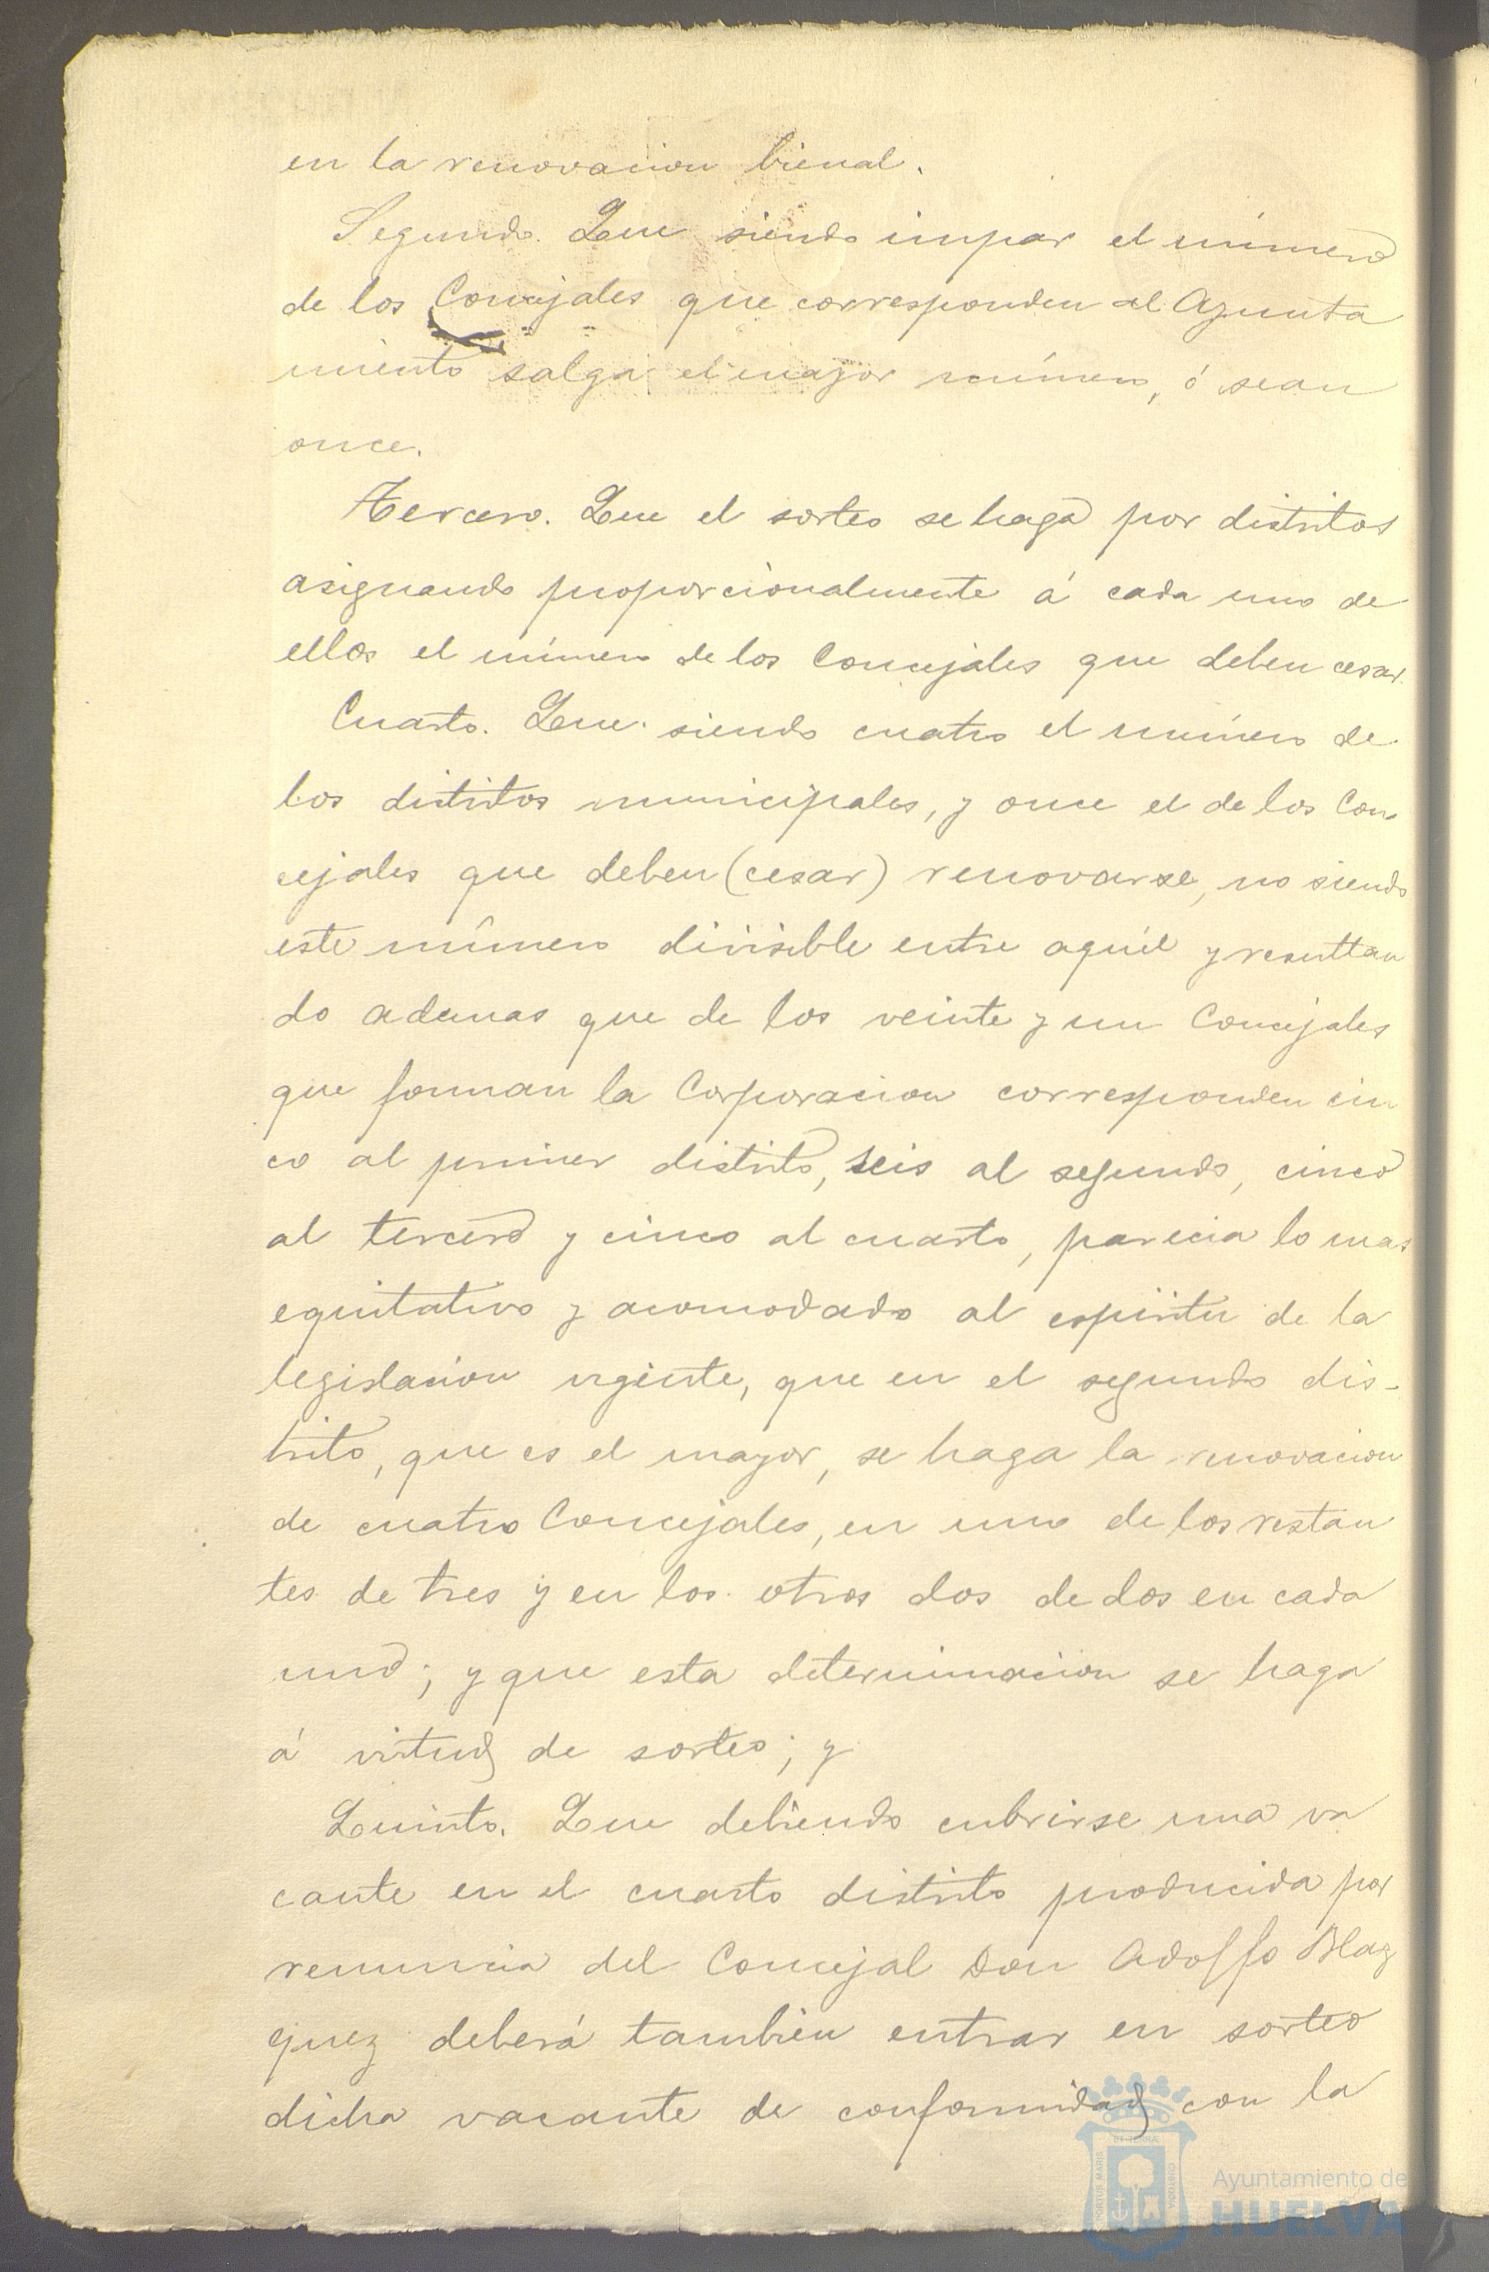 en la renovacion bienal.
Segundo. Que siendo impar el número
de los Concejales que corresponden al Ayunta
miento salga el mayor número, ó sean
once.
Tercero. Que el sorteo se haga por distritos
asignando proporcionalmente á cada uno de
ellos el número de los Concejales que deben cesar.
Cuarto. Que siendo cuatro el número de
los distritos municipales, y once el de los Con-
cejales que deben (cesar) renovarse, no siendo
este número divisible entre aquél y resultan
do ademas que de los veinte y un Concejales
que forman la Corporacion corresponden cin
co al primer distrito, seis al segundo, cinco
al tercero y cinco al cuarto, parecia lo mas
equitativo y acomodado al espíritu de la
legislacion vigente, que en el segundo dis-
trito, que es el mayor, se haga la renovacion
de cuatro Concejales, en uno de los restan
tes de tres y en los otros dos de dos en cada
uno; y que esta determinacion se haga
á virtud de sorteo; y
Quinto. Que debiendo cubrirse una va
cante en el cuarto distrito producida por
renuncia del Concejal Don Adolfo Blaz
quez deberá también entrar en sorteo
dicha vacante de conformidad con la
Ayuntamiento de
HUELVA